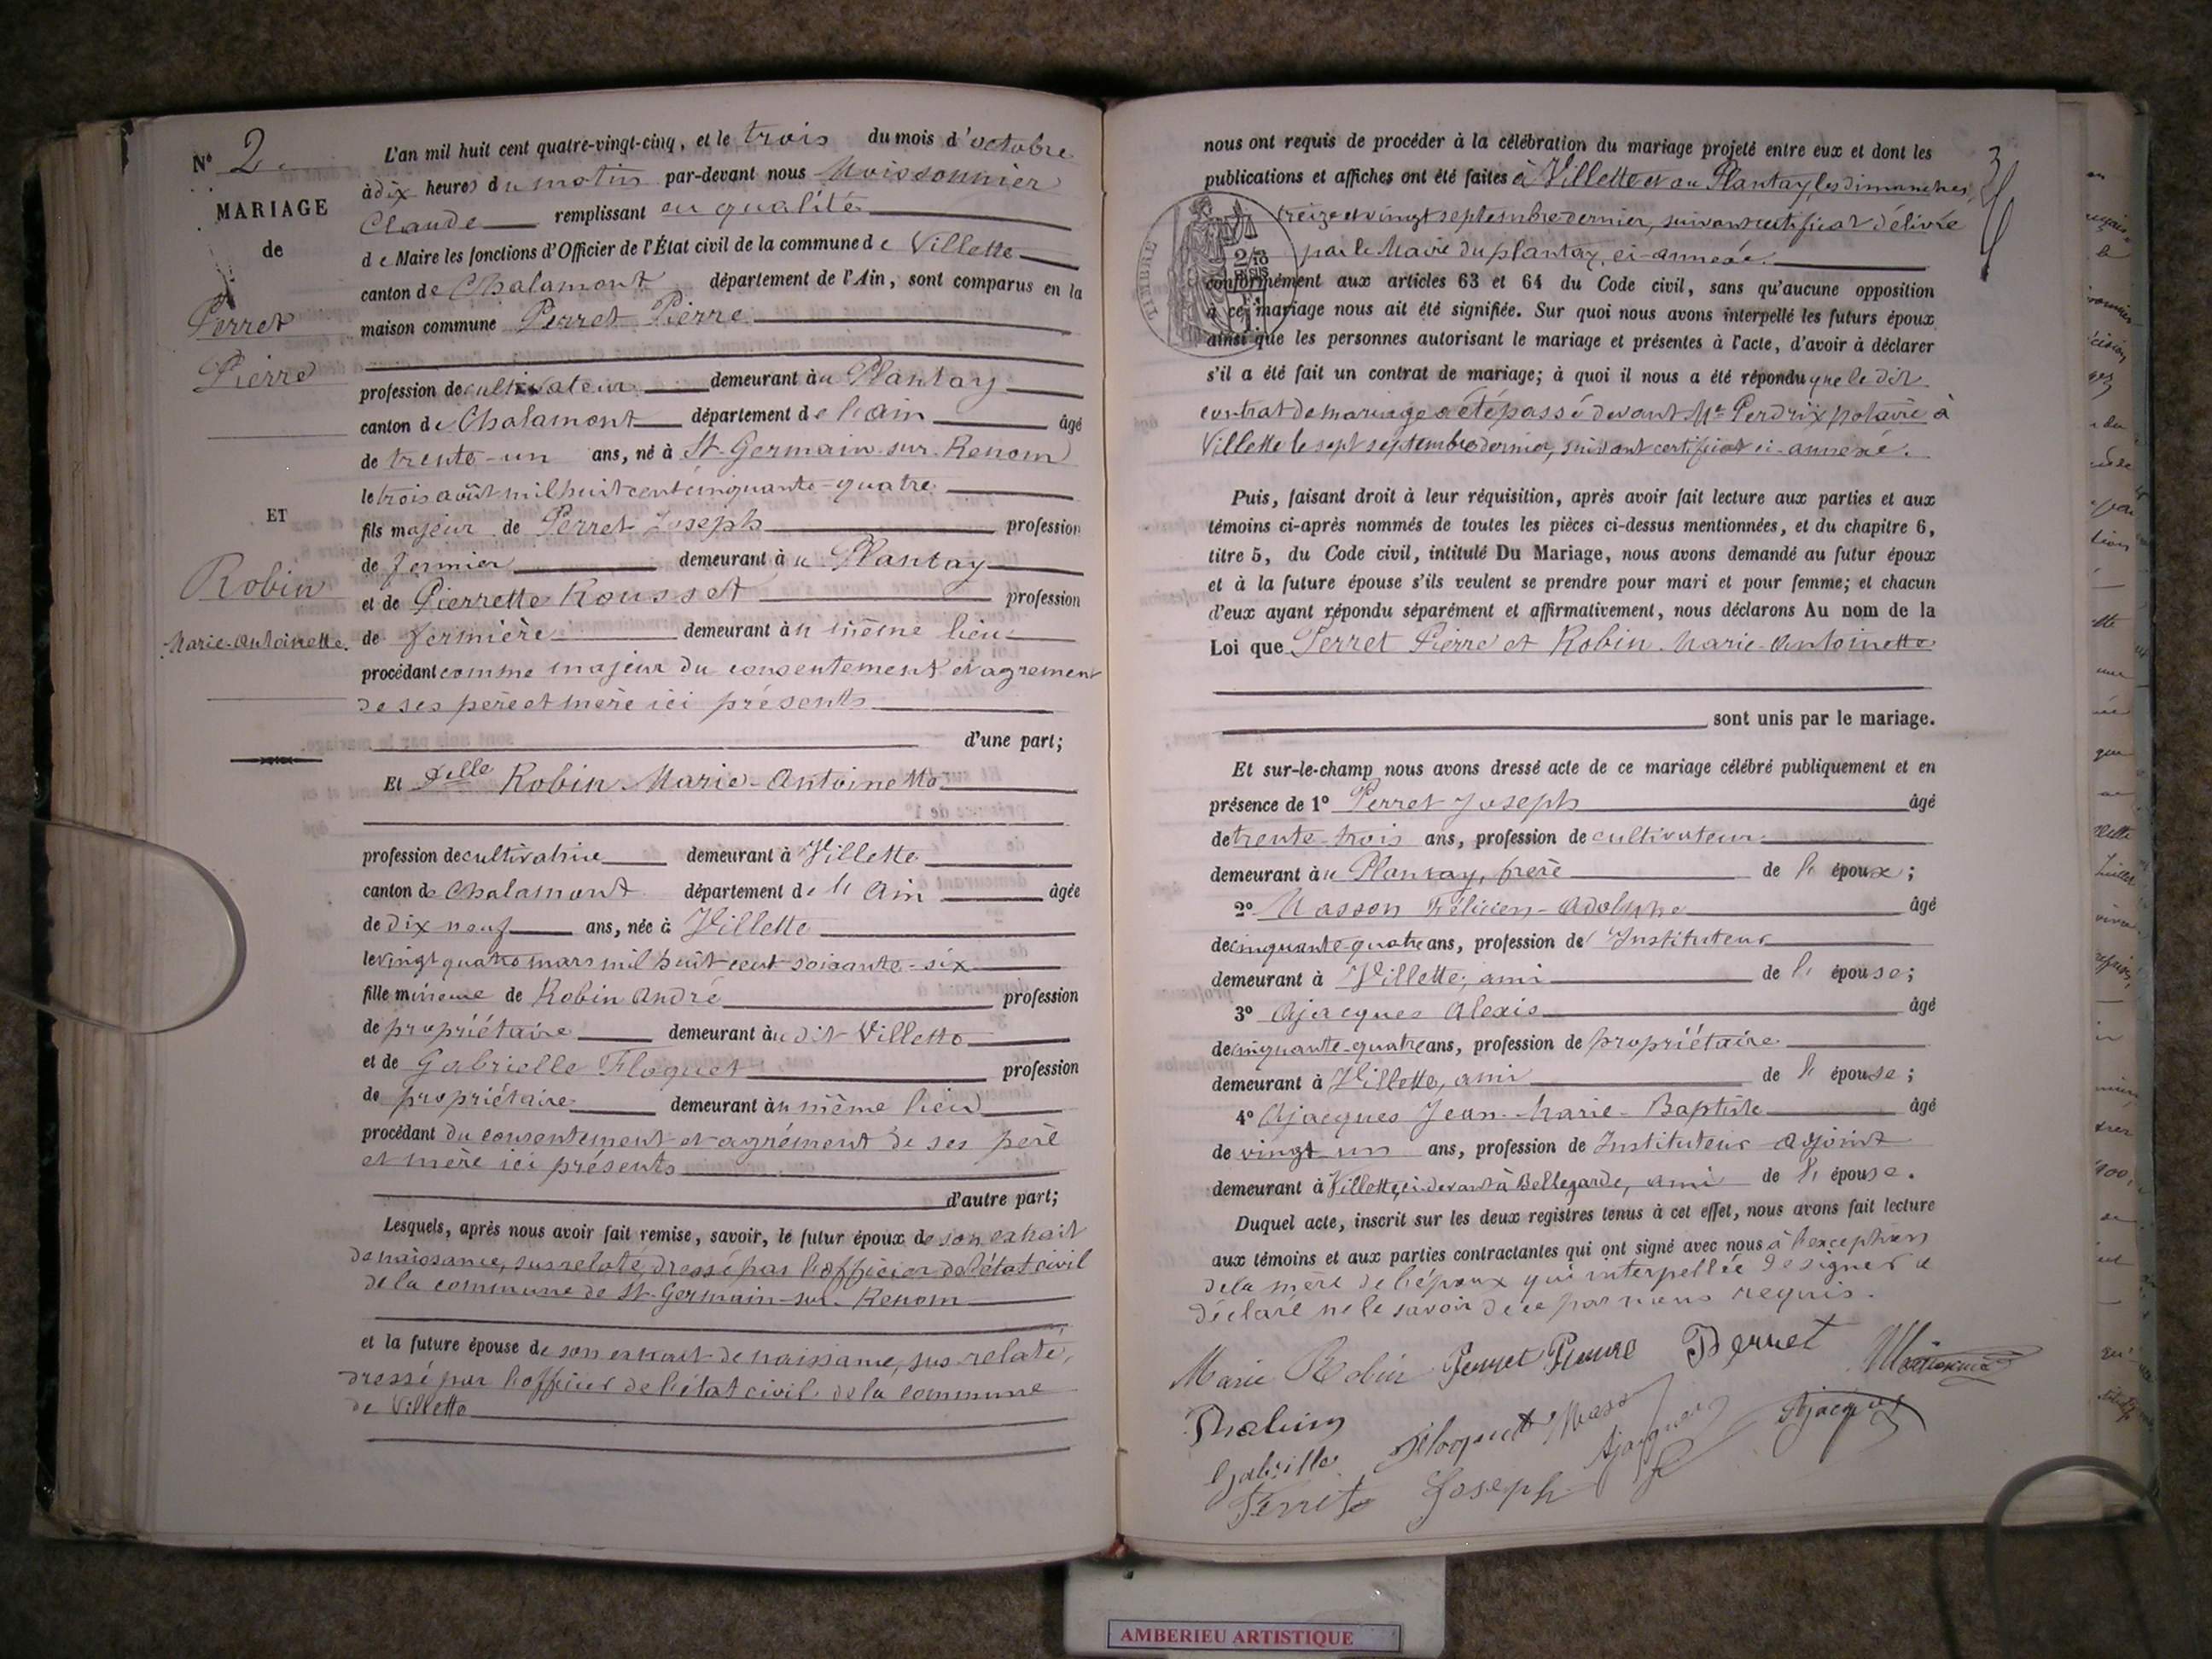 N° 2
MARIAGE
de
Perret
Pierre
ET
Robin
Marie-Antoinette.
L'an mil huit cent quatre-vingt-cinq, et le trois du mois d'octobre
à dix heures du matin par-devant nous Moissonnier
Claude remplissant en qualité
de Maire les fonctions d'Officier de l'État civil de la commune de Villette
canton de Chalamont département de l'Ain, sont comparus en la
maison commune Perret Pierre
profession de cultivateur demeurant au Plantay
canton de Chalamont département de l'Ain âgé
de trente-un ans, né à St-Germain-sur-Renom
le trois août mil huit cent cinquante-quatre
fils majeur de Perret Joseph profession
de fermier demeurant au Plantay
et de Pierrette Rousset profession
de fermière demeurant au même lieu
procédant comme majeur du consentement et agrement
de ses père et mère ici présents
d'une part;
Et Delle Robin Marie-Antoinette
profession de cultivatrice demeurant à Villette
canton de Chalamont département de l'Ain âgée
de dix neuf ans, née à Villette
le vingt quatre mars mil huit cent soixante-six
fille mineure de Robin André profession
de propriétaire demeurant audit Villette
et de Gabrielle Floquet profession
de propriétaire demeurant au même lieu
procédant du consentement et agrément de ses père
et mère ici présents
d'autre part;
Lesquels, après nous avoir fait remise, savoir, le futur époux de son extrait
de naissance, sus relaté, dressé par l'officier de l'état civil
de la commune de St-Germain-sur-Renom
et la future épouse de son extrait de naissance, sus relaté,
dressé par l'officier de l'état civil de la commune
de Villette
nous ont requis de procéder à la célébration du mariage projeté entre eux et dont les
publications et affiches ont été faites à Villette et au Plantay, les dimanches
treize et vingt septembre dernier, suivant certificat délivré
par le Maire du plantay, ci-annexé.
TIMBRE
conformément aux articles 63 et 64 du Code civil, sans qu'aucune opposition
à ce mariage nous ait été signifiée. Sur quoi nous avons interpellé les futurs époux
ainsi que les personnes autorisant le mariage et présentes à l'acte, d'avoir à déclarer
s'il a été fait un contrat de mariage; à quoi il nous a été répondu que le dit
contrat de mariage a été passé devant Me Perdrix notaire à
Villette le sept septembre dernier, suivant certificat ci-annexé.
Puis, faisant droit à leur réquisition, après avoir fait lecture aux parties et aux
témoins ci-après nommés de toutes les pièces ci-dessus mentionnées, et du chapitre 6,
titre 5, du Code civil, intitulé Du Mariage, nous avons demandé au futur époux
et à la future épouse s'ils veulent se prendre pour mari et pour femme; et chacun
d'eux ayant répondu séparément et affirmativement, nous déclarons Au nom de la
Loi que Perret Pierre et Robin Marie-Antoinette
sont unis par le mariage.
Et sur-le-champ nous avons dressé acte de ce mariage célébré publiquement et en
présence de 1° Perret Joseph âgé
de trente-trois ans, profession de cultivateur
demeurant au Plantay, frère de l'époux;
2° Masson Félicien-Adolphe âgé
de cinquante-quatre ans, profession d'Instituteur
demeurant à Villette, ami de l'épouse;
3° Ajacques Alexis âgé
de cinquante-quatre ans, profession de propriétaire
demeurant à Villette, ami de l'épouse;
4° Ajacques Jean-Marie-Baptiste âgé
de vingt un ans, profession de Instituteur adjoint
demeurant à Villette, ci-devant à Bellegarde, ami de l'épouse.
Duquel acte, inscrit sur les deux registres tenus à cet effet, nous avons fait lecture
aux témoins et aux parties contractantes qui ont signé avec nous à l'exception
de la mère de l'époux qui interpellée de signer a
déclaré ne le savoir de ce par nous requis.
Marie Robin Perret Pierre Perret
Gabrielle Floquet Ajacques Ajacques
Perret Joseph
AMBERIEU ARTISTIQUE